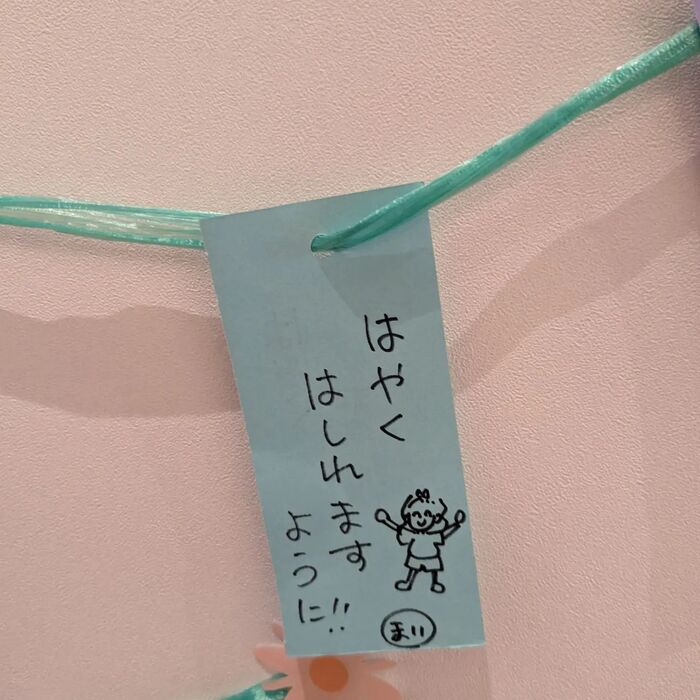 はやく
はしれます
ように!!
まい